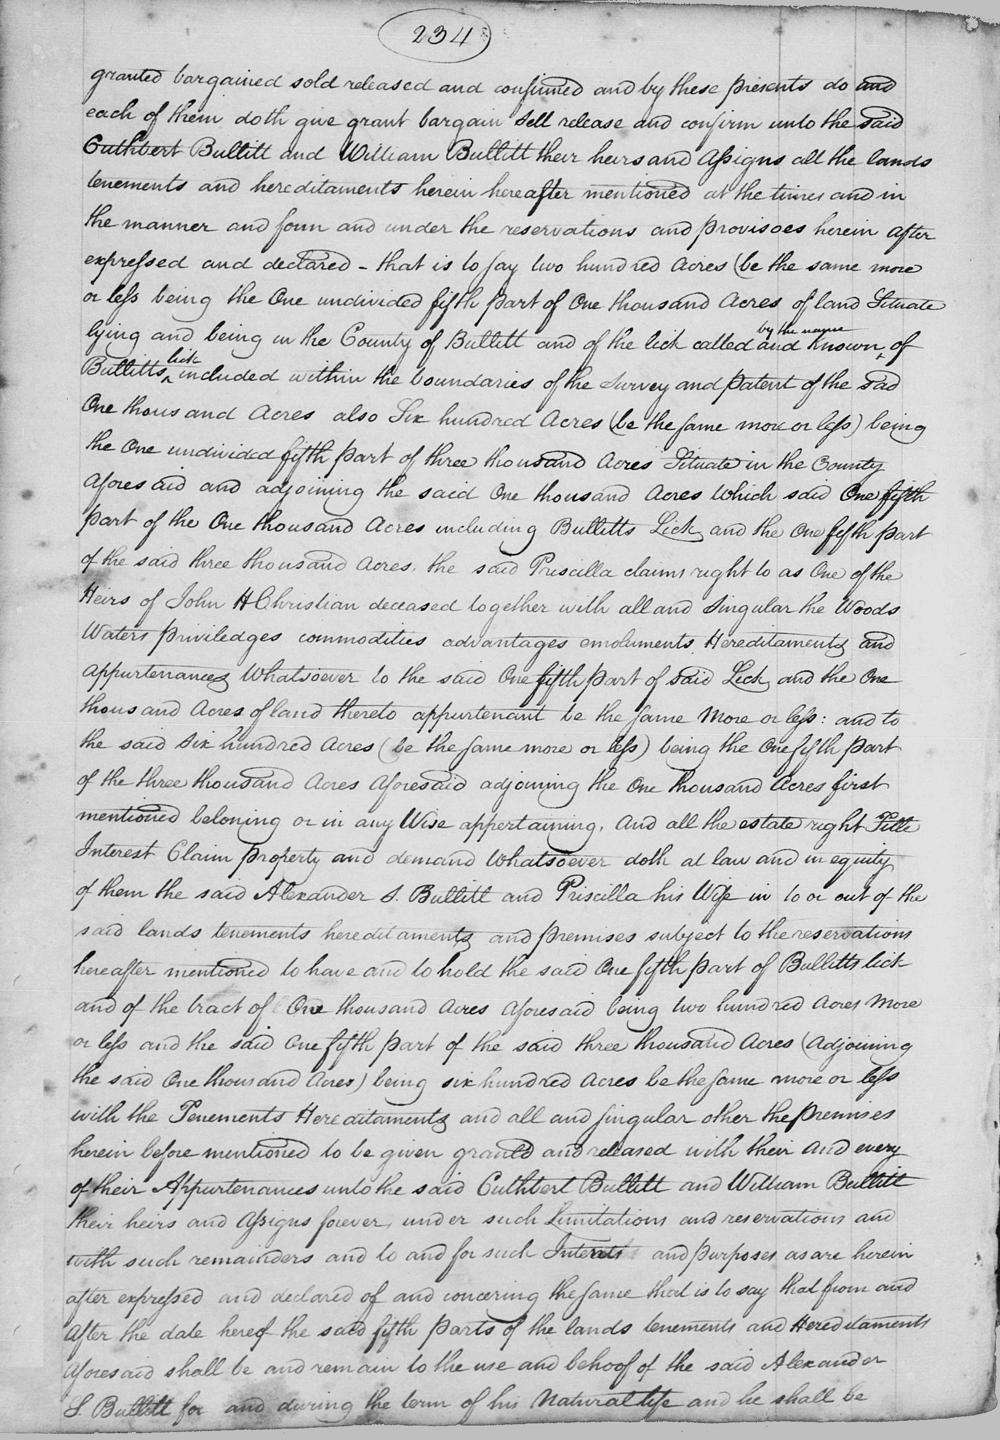 234
granted bargained sold released and confirmed and by these presents do and
each of them doth give grant bargain sell release and confirm unto the said
Cuthbert Bullitt and William Bullitt their heirs and Assigns all the lands
tenements and hereditaments herein hereafter mentioned at the times and in
the manner and form and under the reservations and provisoes herein after
expressed and declared - that is to say two hundred Acres (be the same more
or less being the One undivided fifth part of One thousand Acres of land Situate
lying and being in the County of Bullitt and of the lick called and known by the name of
Bullitts lick included within the boundaries of the survey and patent of the sad
One thousand Acres also Six hundred Acres (be the same more or less) being
the One undivided fifth part of three thousand Acres Situate in the County
aforesaid and adjoining the said One thousand Acres Which said One fifth
part of the One thousand Acres including Bullitts Lick and the One fifth part
of the said three thousand Acres, the said Priscilla claims right to as One of the
Heirs of John H Christian deceased together with all and Singular the Woods
Waters priviledges commodities advantages emoluments Hereditaments and
appurtenances Whatsoever to the said One fifth part of said Lick and the One
thousand Acres of land thereto appurtenant be the same More or less: and to
the said six hundred Acres (be the same more or less) being the One fifth part
of the three thousand Acres Aforesaid adjoining the One thousand Acres first
mentioned beloning or in any Wise appertaining, And all the estate right Title
Interest Claim property and demand Whatsoever doth at law and in equity
of them the said Alexander S. Bullitt and Priscilla his Wife in to or out of the
said lands tenements hereditaments and premises subject to the reservations
hereafter mentioned to have and to hold the said One fifth part of Bullitts lick
and of the tract of One thousand Acres Aforesaid being two hundred Acres More
or less and the said One fifth part of the said three thousand Acres (Adjoining
the said One thousand Acres) being six hundred Acres be the same more or less
with the Tenements Hereditaments and all and singular other the premises
herein before mentioned to be given granted and released with their and every
of their Appurtenances unto the said Cuthbert Bullitt and William Bullitt
their heirs and Assigns forever, under such Limitations and reservations and
with such remainders and to and for such Interests and purposes as are herein
after expressed and declared of and concering the same that is to say that from and
After the date hereof the said fifth parts of the lands tenements and Hereditaments
Aforesaid shall be and remain to the use and behoof of the said Alexander
S. Bullitt for and during the term of his Natural life and he shall be